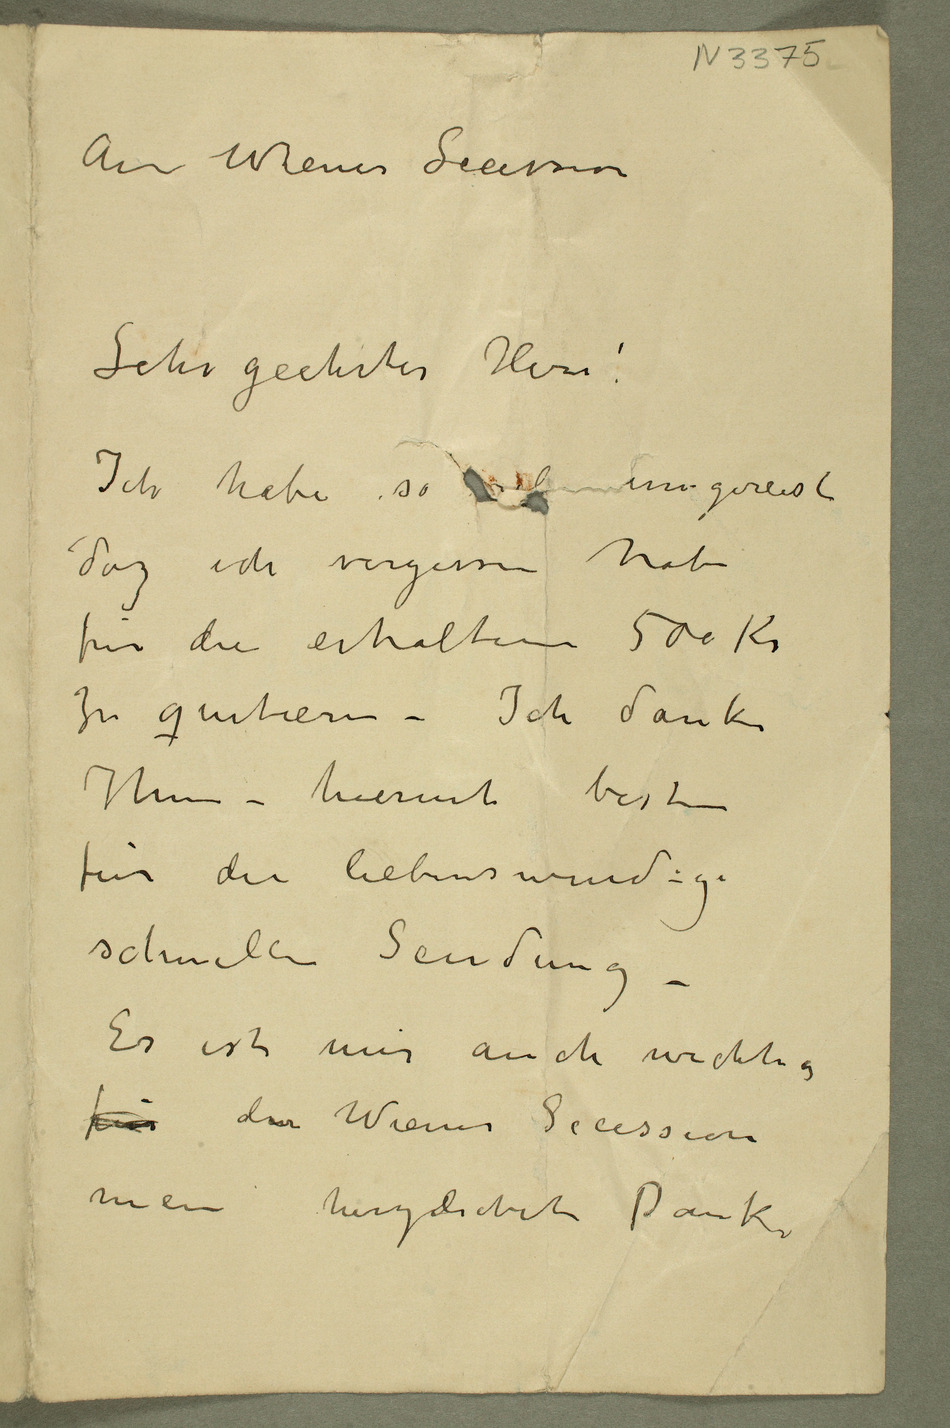 N 3375
An Wiener Secession
Sehr geehrter Herr!
Ich habe so umgereist
daz ich vergessen habe
für die erhaltene 500 Kr
zu quitieren – Ich danke
Ihnen – hiermit besten
für die liebenswürdige
schnelle Sendung –
Es ist mir auch wichtig
für der Wiener Secession
mein herzlichste Danke